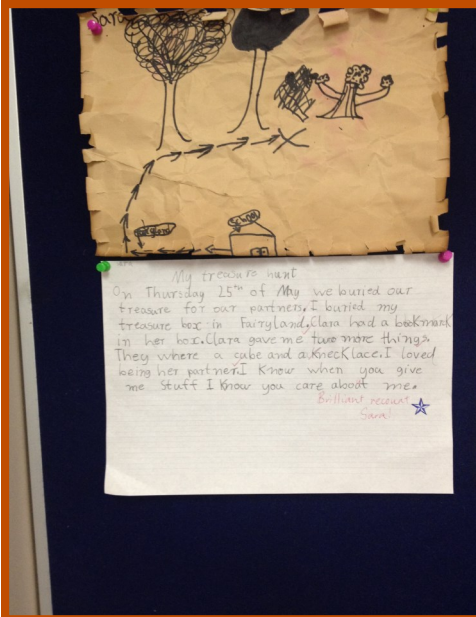 Sara
School
My treasure hunt
On Thursday 25th of May we buried our
treasure for our partners. I buried my
treasure box in Fairyland. Clara had a bookmark
in her box. Clara gave me two more things.
They where a cube and a kneckLace. I loved
being her partner. I know when you give
me stuff I know you care about me.
Brilliant recount
Sara!